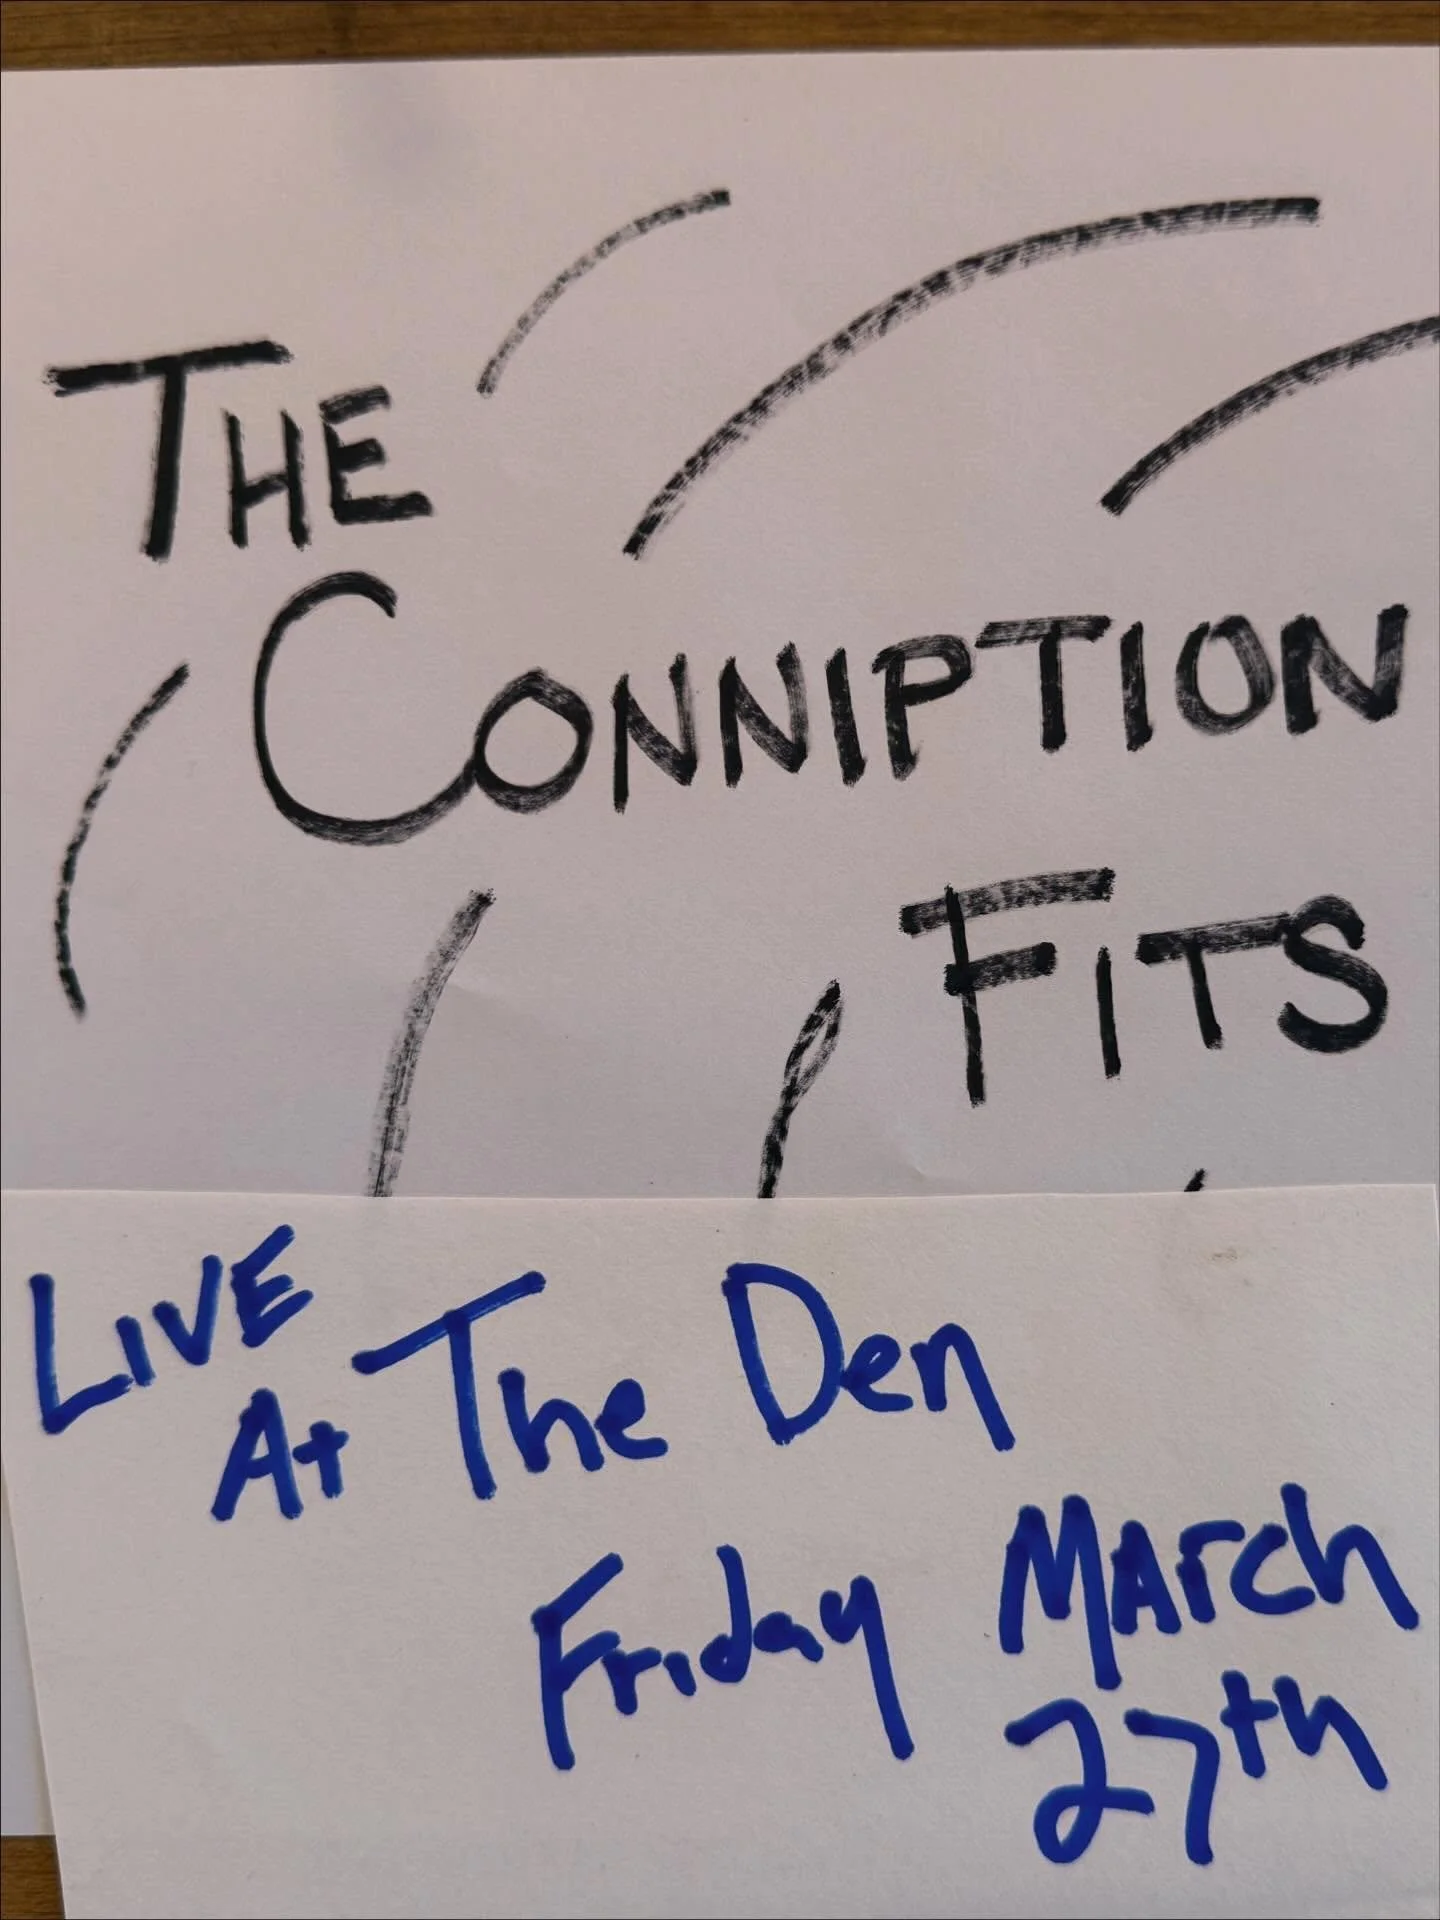 THE
CONNIPTION
FITS
LIVE
At The Den
Friday March
27th